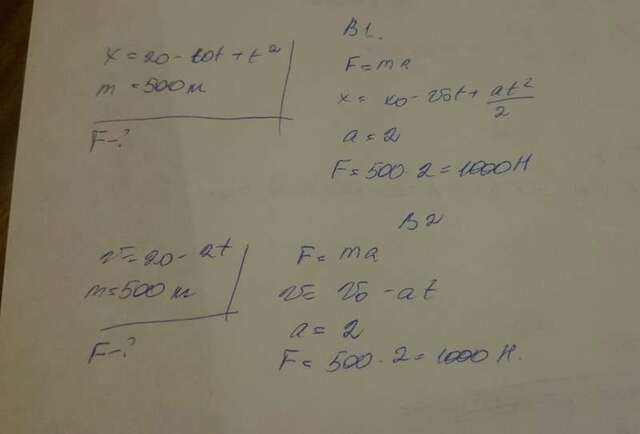 B1.
x = 20 - 10t + t²
m = 500 м
F - ?
F = ma
x = x0 - v0t + at²/2
a = 2
F = 500 · 2 = 1000 Н
B2
v = 20 - 2t
m = 500 м
F - ?
F = ma
v = v0 - at
a = 2
F = 500 · 2 = 1000 Н.